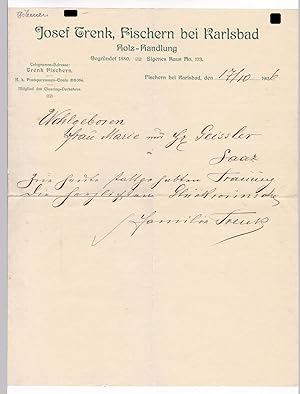 Josef Trenk, Fischern bei Karlsbad
Holz-Handlung
Gegründet 1880. Eigenes Haus No. 173.
Telegramm-Adresse:
Trenk Fischern.
K. k. Postsparcassen-Conto
Mitglied des Clearing-Verkehres.
Fischern bei Karlsbad, den 17/10 1906
Wohlgeboren
Frau Marie und H. Geissler
Saaz
Zur heute stattgehabten Trauung
die herzlichsten Glückwünsche
Familie Trenk